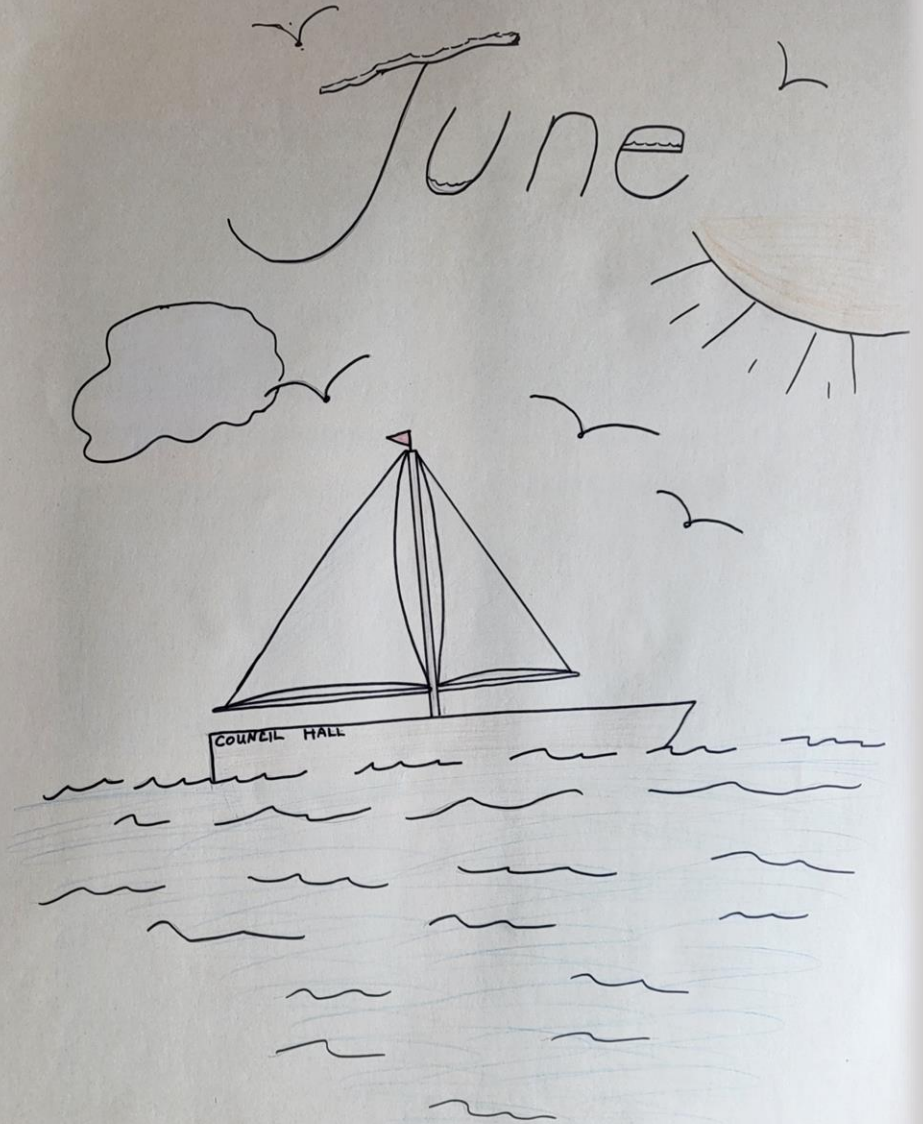 June
COUNCIL HALL